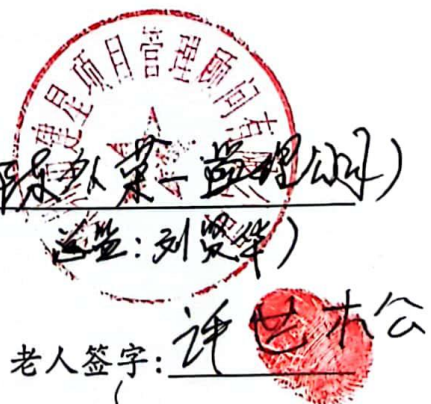 建星项目管理顾问有
第一监理公司)
总监:刘贤华)
老人签字:许艺木公